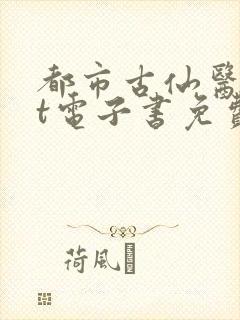 都市古仙醫
t電子書免費
荷風